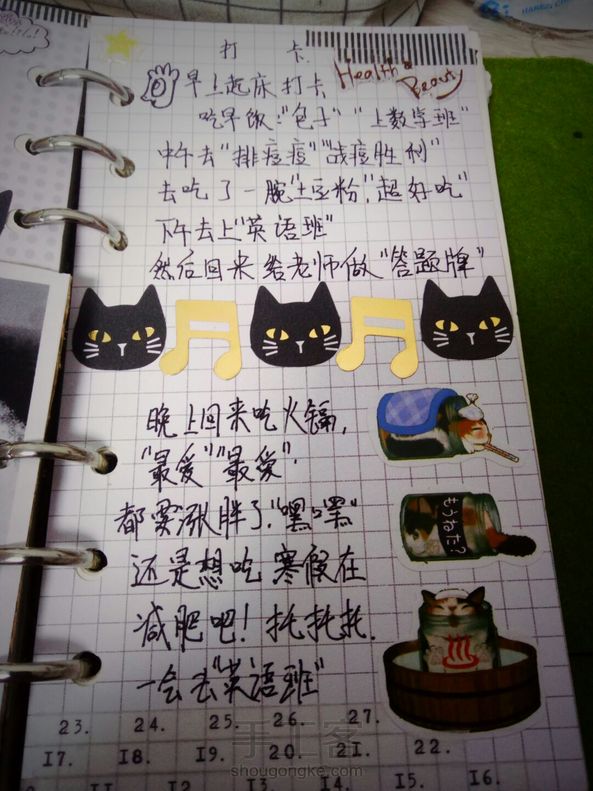 打 卡
Health & Beauty
早上起床打卡
吃早饭:"包子" "上数学班"
中午去"排痘痘""战痘胜利"
去吃了一腕"土豆粉""超好吃"
下午去上"英语班"
然后回来给老师做"答题牌"
晚上回来吃火锅,
"最爱""最爱".
都要涨胖了."嘿嘿"
还是想吃 寒假在
减肥吧! 托托托.
一会去"英语班"
もうねた?
23. 24. 25. 26. 27.
17. 18. 19. 20. 21. 22.
11. 12. 13. 14. 15. 16.
手工客
shougongke.com